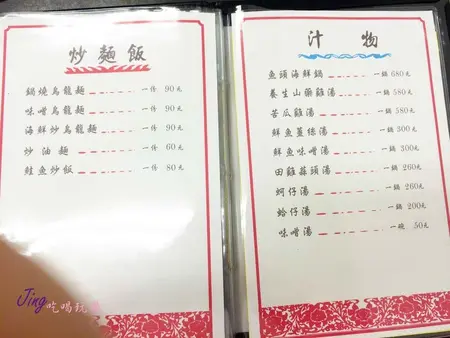 炒麵飯
鍋燒烏龍麵 一份 90元
味噌烏龍麵 一份 90元
海鮮炒烏龍麵 一份 90元
炒油麵 一份 60元
鮭魚炒飯 一份 80元
汁物
魚頭海鮮鍋 一鍋680元
養生山藥雞湯 一鍋580元
苦瓜雞湯 一鍋580元
鮮魚薑絲湯 一鍋300元
鮮魚味噌湯 一鍋300元
田雞蒜頭湯 一鍋260元
蚵仔湯 一鍋260元
蛤仔湯 一鍋200元
味噌湯 一碗 50元
Jing吃喝玩